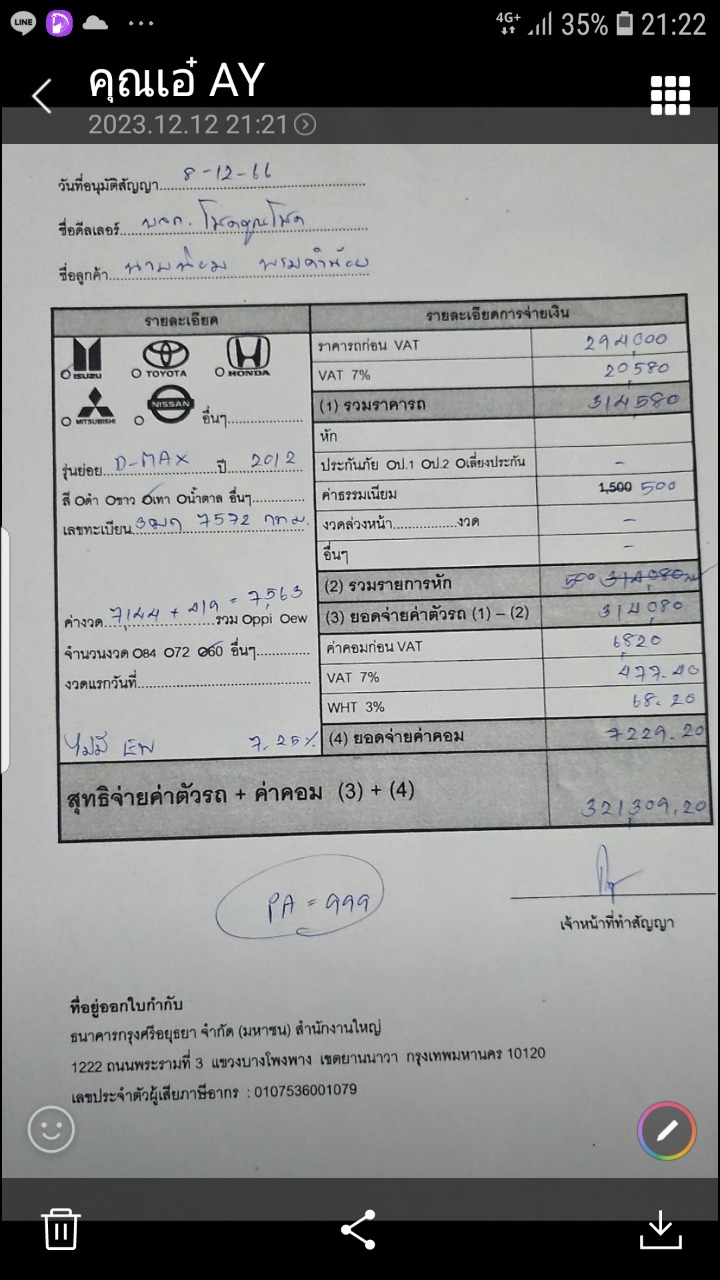 LINE ... 4G+ 35% 21:22
คุณเอ๋ AY
2023.12.12 21:21
วันที่อนุมัติสัญญา 8-12-66
ชื่อดีลเลอร์ บจก. โชคคูณโชค
ชื่อลูกค้า นาย พรมคำน้อย
รายละเอียด รายละเอียดการจ่ายเงิน
ISUZU TOYOTA HONDA
ราคารถก่อน VAT 294,000
VAT 7% 20,580
MITSUBISHI NISSAN อื่นๆ
(1) รวมราคารถ 314580
หัก
รุ่นย่อย D-MAX ปี 2012
ประกันภัย Oป.1 Oป.2 Oเลี่ยงประกัน -
สี Oดำ Oขาว Oเทา Oน้ำตาล อื่นๆ
ค่าธรรมเนียม 1,500 500
เลขทะเบียน 7572 กทม.
งวดล่วงหน้า งวด -
อื่นๆ -
(2) รวมรายการหัก 500 314,080
ค่างวด 7,144 + 419 = 7,563 รวม Oppi Oew
(3) ยอดจ่ายค่าตัวรถ (1) – (2) 314,080
จำนวนงวด O84 O72 O60 อื่นๆ
ค่าคอมก่อน VAT 6,820
งวดแรกวันที่
VAT 7% 477.40
WHT 3% 68.20
ไม่มี 7.25%
(4) ยอดจ่ายค่าคอม 7229.20
สุทธิจ่ายค่าตัวรถ + ค่าคอม (3) + (4) 321,309.20
PA = 999
เจ้าหน้าที่ทำสัญญา
ที่อยู่ออกใบกำกับ
ธนาคารกรุงศรีอยุธยา จำกัด (มหาชน) สำนักงานใหญ่
1222 ถนนพระรามที่ 3 แขวงบางโพงพาง เขตยานนาวา กรุงเทพมหานคร 10120
เลขประจำตัวผู้เสียภาษีอากร : 0107536001079